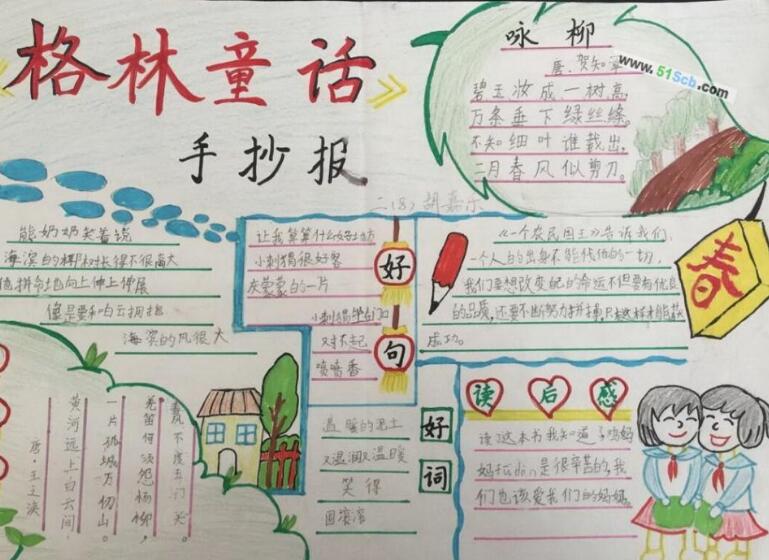 格林童话
手抄报
二(8) 胡嘉乐
咏柳
唐.贺知章
碧玉妆成一树高,
万条垂下绿丝绦。
不知细叶谁裁出,
二月春风似剪刀。
www.51Scb.com
熊奶奶笑着说
海滨的椰树长得不很高大
海滨的风很大
让我算算什么好
小刺猬很好客
灰蒙蒙的一片
对不起
喷喷香
好句
《一个农民国王》告诉我们,
一个人的出身不能代他的一切,
我们要想改变自己的命运不但要有优良
的品质,还要不断努力拼搏,只有这样才能获
成功。
春
春风不度玉门关。
羌笛何须怨杨柳,
一片孤城万仞山。
黄河远上白云间,
唐.王之涣
温暖的泥土
又温润又温暖
笑得
圆滚滚
好词
读后感
读这本书我知道了鸡妈
妈拉dàn是很辛苦的,我
们也该爱我们的妈妈。